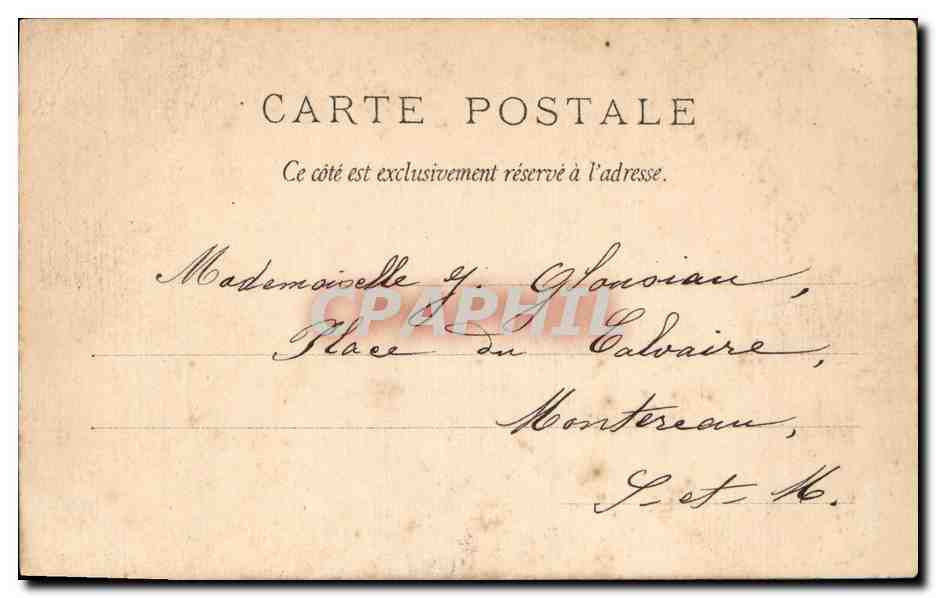 CARTE POSTALE
Ce côté est exclusivement réservé à l'adresse.
Mademoiselle
CPAPHIL
Place du Calvaire,
Montereau,
S-et-M.